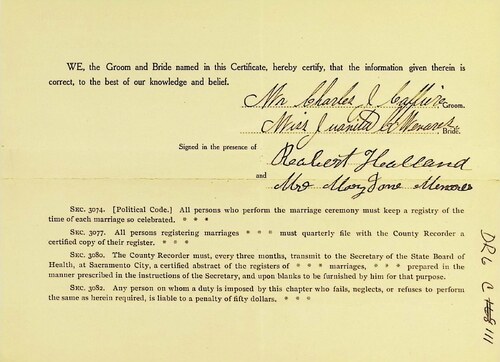 WE, the Groom and Bride named in this Certificate, hereby certify, that the information given therein is
correct, to the best of our knowledge and belief.
Mr Charles J Groom.
Miss Juanita Bride.
Signed in the presence of
Robert Holland
and
Mrs Mary Jane
SEC. 3074. [Political Code.] All persons who perform the marriage ceremony must keep a registry of
the time of each marriage so celebrated. * * *
SEC. 3077. All persons registering marriages * * * must quarterly file with the County Recorder a
certified copy of their register. * * *
SEC. 3080. The County Recorder must, every three months, transmit to the Secretary of the State Board of
Health, at Sacramento City, a certified abstract of the registers of * * * marriages, * * * prepared in the
manner prescribed in the instructions of the Secretary, and upon blanks to be furnished by him for that purpose.
SEC. 3082. Any person on whom a duty is imposed by this chapter who fails, neglects, or refuses to perform
the same as herein required, is liable to a penalty of fifty dollars. * * *